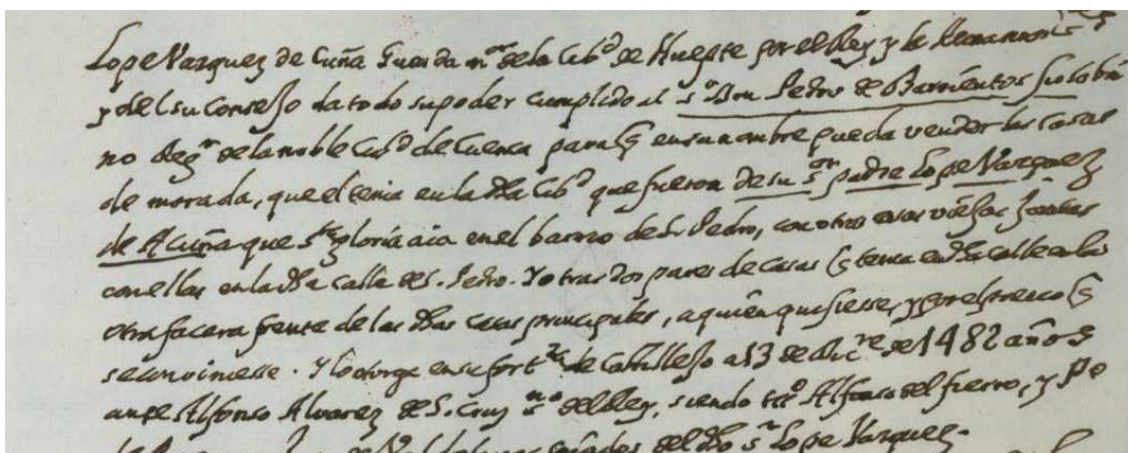 Lope Vazquez de Cuña Guarda m.or de la Cib.d de Huepte por el Rey y la Reina nros s.es
y del su Consejo da todo su poder cumplido al s.or Don Pedro de Barrientos su sobri
no Reg.or de la noble Cib.d de Cuenca para q en su nombre pueda vender las casas
de morada, que el tenia en la dha Cib.d que fueron de su s.or padre Lope Vazquez
de Acuña que s.ta gloria aia en el barrio de S. Pedro, con otras casas viejas juntas
con ellas en la dha calle de S. Pedro. Y otras dos pares de casas q tenia en dha calle en la
otra facera frente de las dhas casas principales, a quien quisiesse, y por el precio q
se conviniesse. Y lo otorgo en su fort.za de Castillejo a 13 de Dic.re de 1482 años
ante Alfonso Alvarez de S. Cruz s.no del Rey, siendo to Alfonso del fierro, y P.o
criados del dho s.or Lope Vazquez.